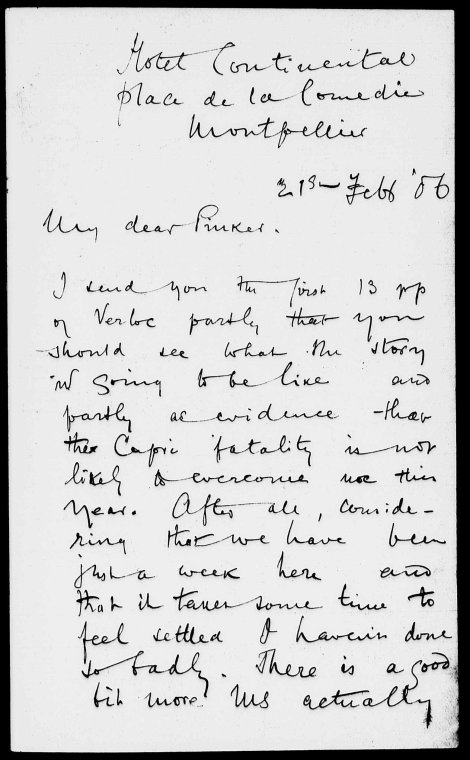 Hotel Continental
place de la Comedie
Montpellier
21st Febr '06
My dear Pinker.
I send you the first 13 pp
of Verloc partly that you
should see what the story
is going to be like and
partly as evidence that
the Capri fatality is not
likely to overcome me this
year. After all, conside-
ring that we have been
just a week here and
that it takes some time to
feel settled I haven't done
so badly. There is a good
bit more MS actually